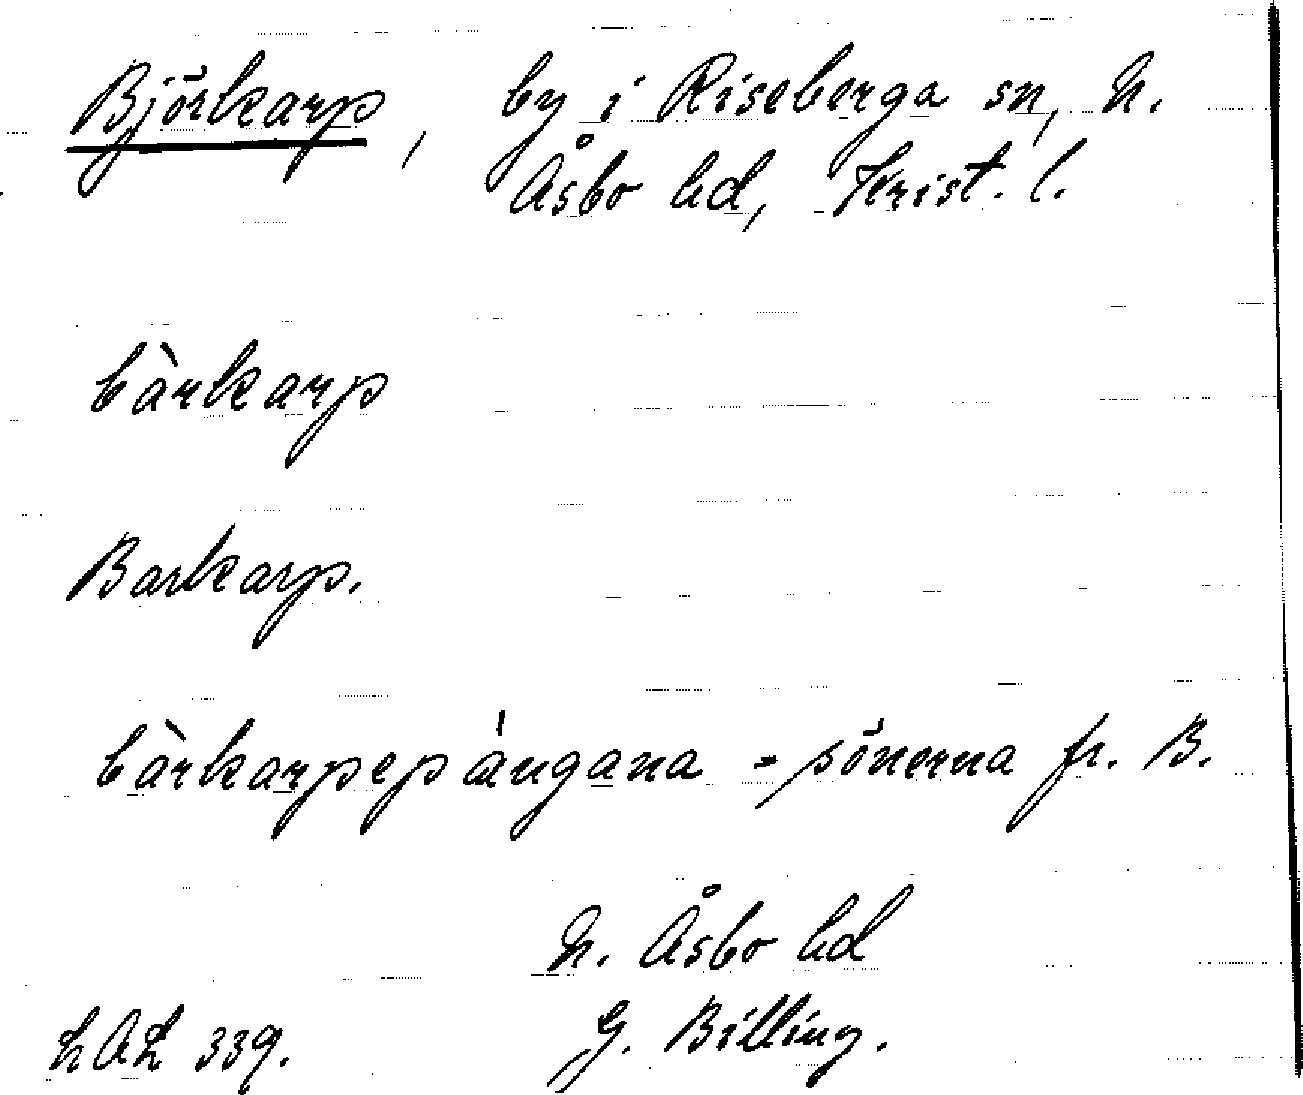 Björkarp, by i Riseberga sn, N.
Åsbo hd, Krist. l.
bàrkarp
Barkarp.
bàrkarpepángana = sönerna fr. B.
N. Åsbo hd
LAL 339. G. Billing.